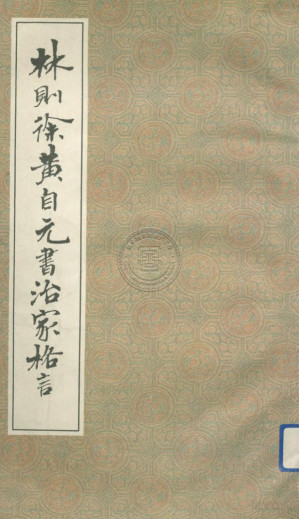 林则徐黄自元書治家格言